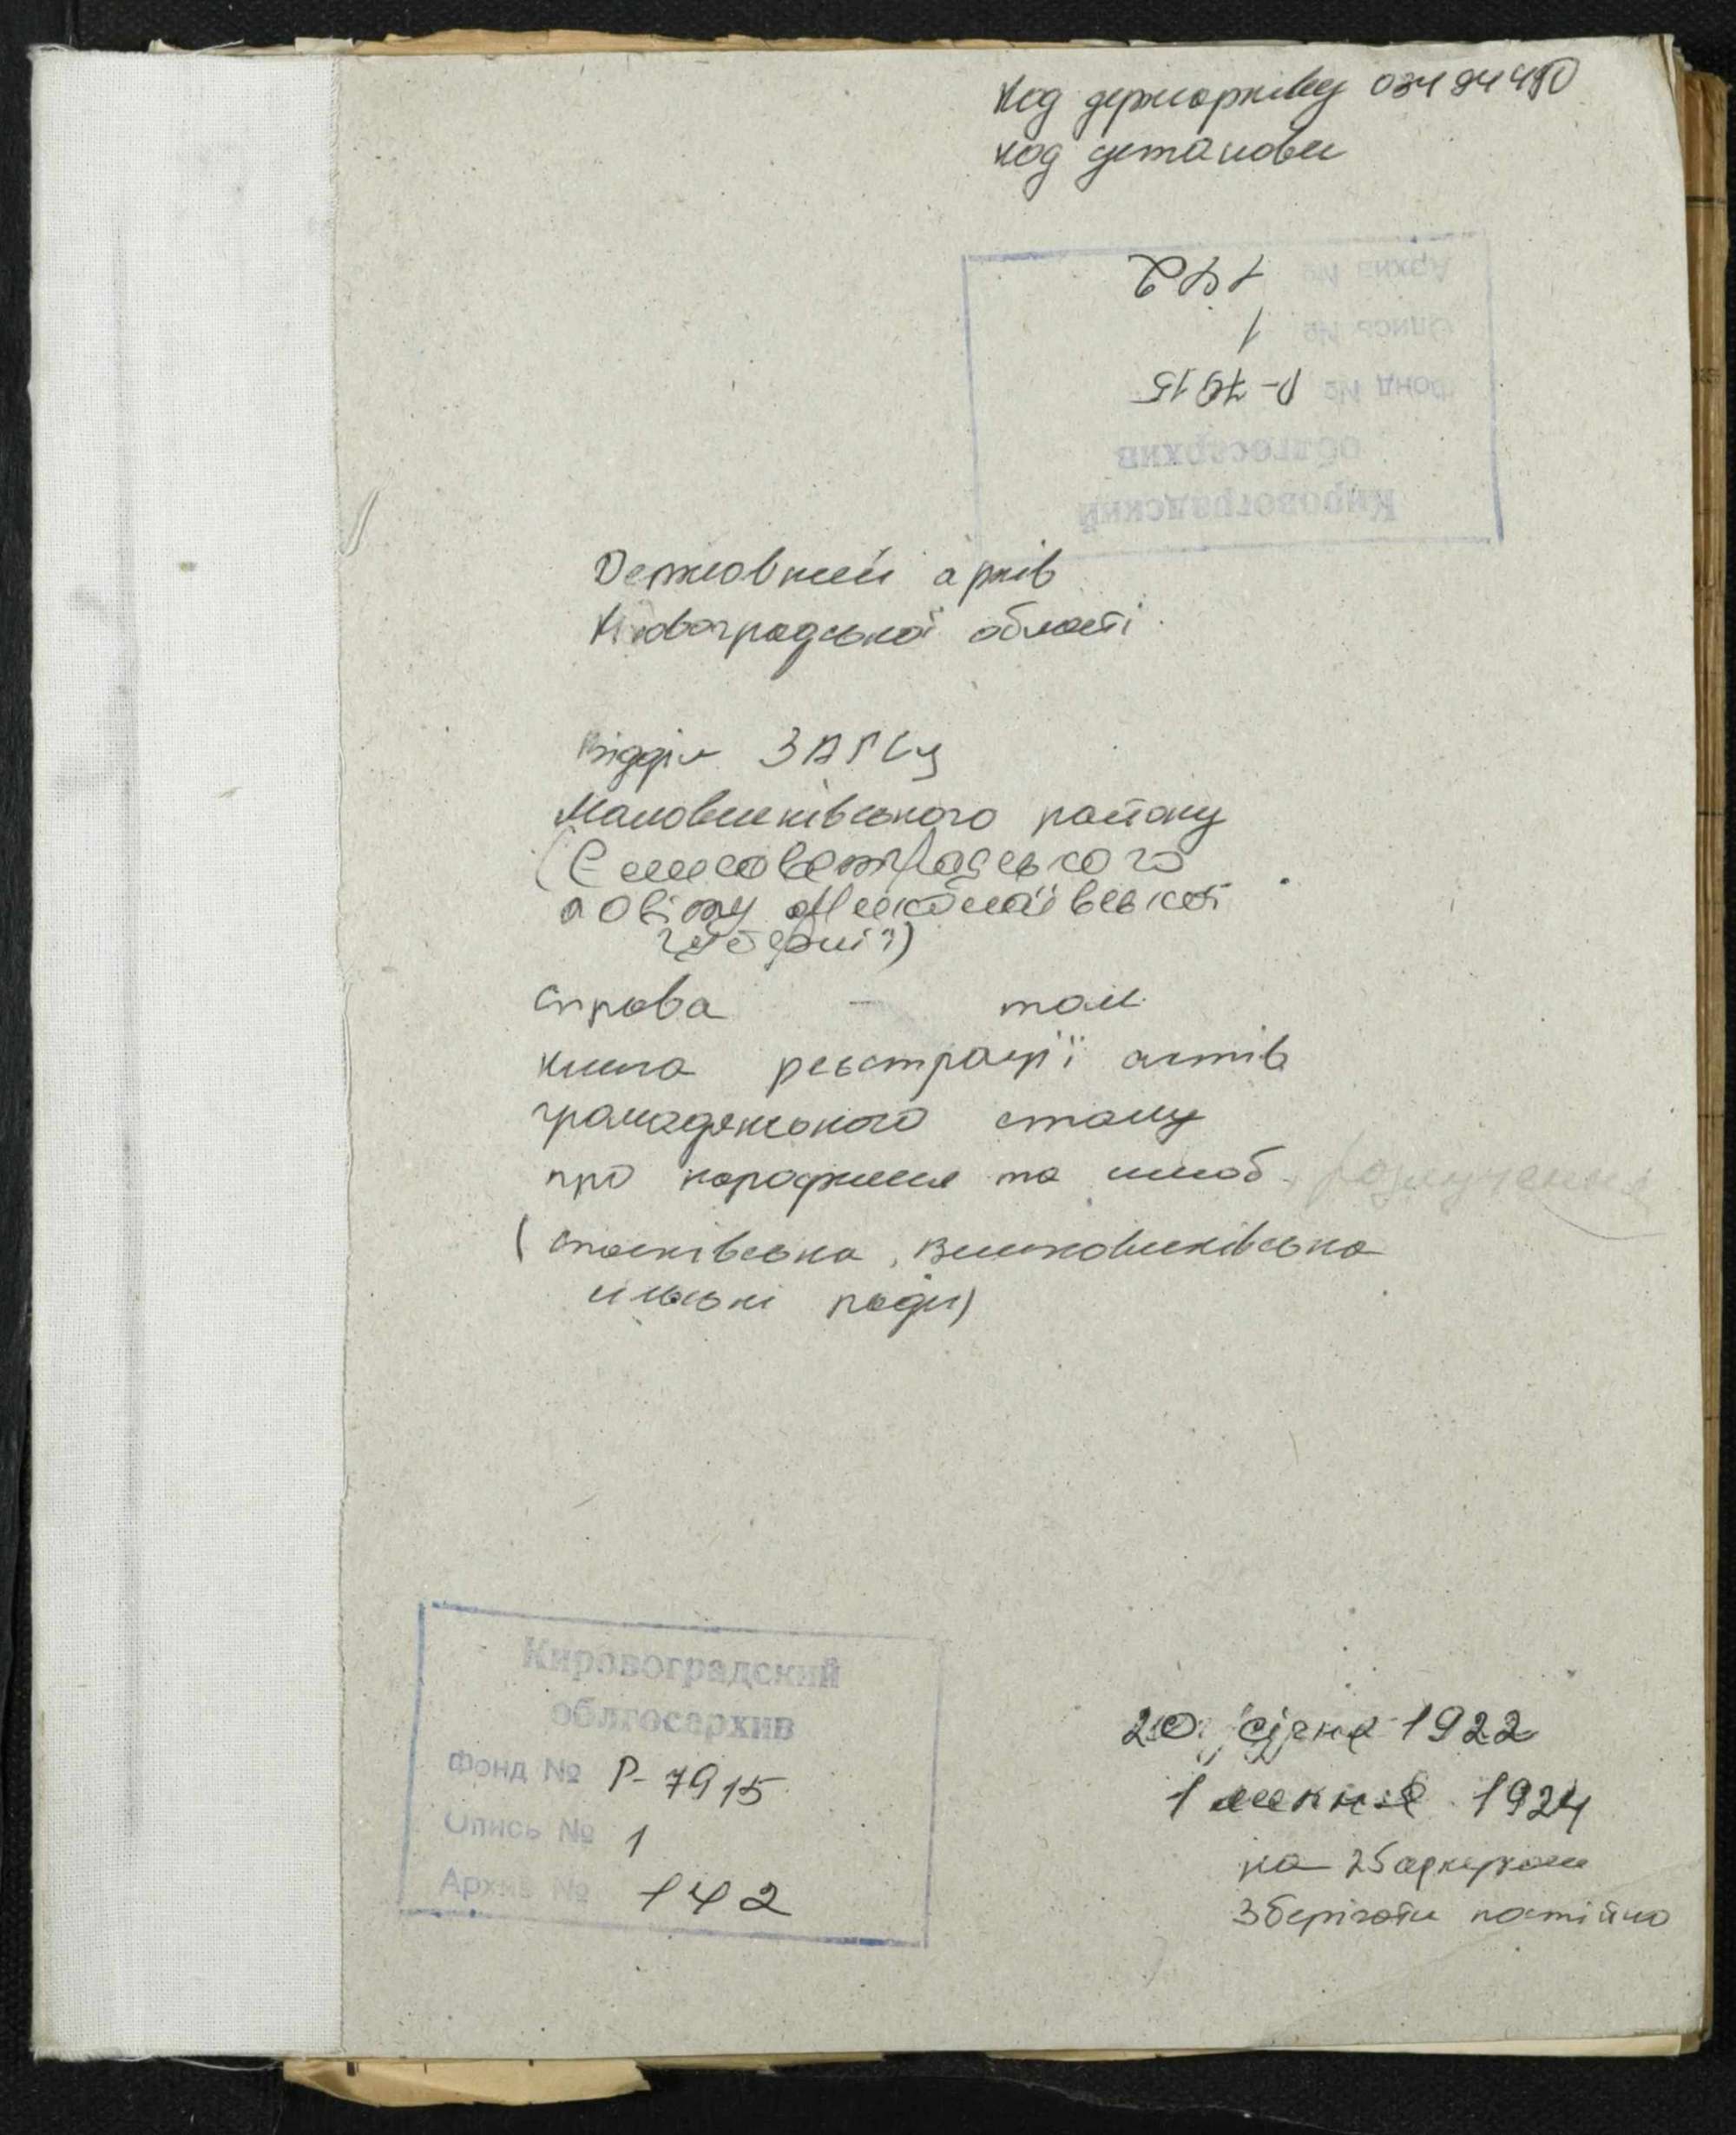 Код держархіву 03494450
код установи
Кировоградский
облгосархив
Фонд № Р-7915
Опись № 1
Архив № 142
Державний архів
Кіровоградської області
Відділ ЗАГСу
Маловисківського району
(Єлисаветградського
повіту Миколаївської
губернії)
Справа том
книга реєстрації актів
громадянського стану
про народження та шлюб, розлучення
(Паньківська, Великовисківська
сільські ради)
Кировоградский
облгосархив
Фонд № Р-7915
Опись № 1
Архив № 142
20 січня 1922
1 липня 1924
на 25 аркушах
Зберігати постійно